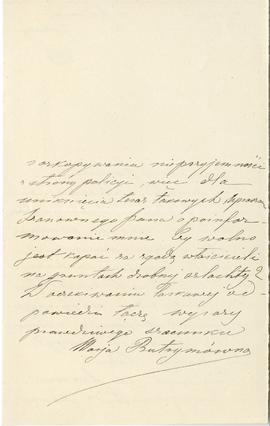 rozkopywania nieprzyjemności
strony policji, więc dla
uniknięcia tych
Szanownego Pana o poinfor-
mowanie mnie czy wolno
jest kopać za zgodą właścicieli
na gruntach drobnej szlachty?
W oczekiwaniu łaskawej od-
powiedzi łączę wyrazy
prawdziwego szacunku
Marja Butrymówna